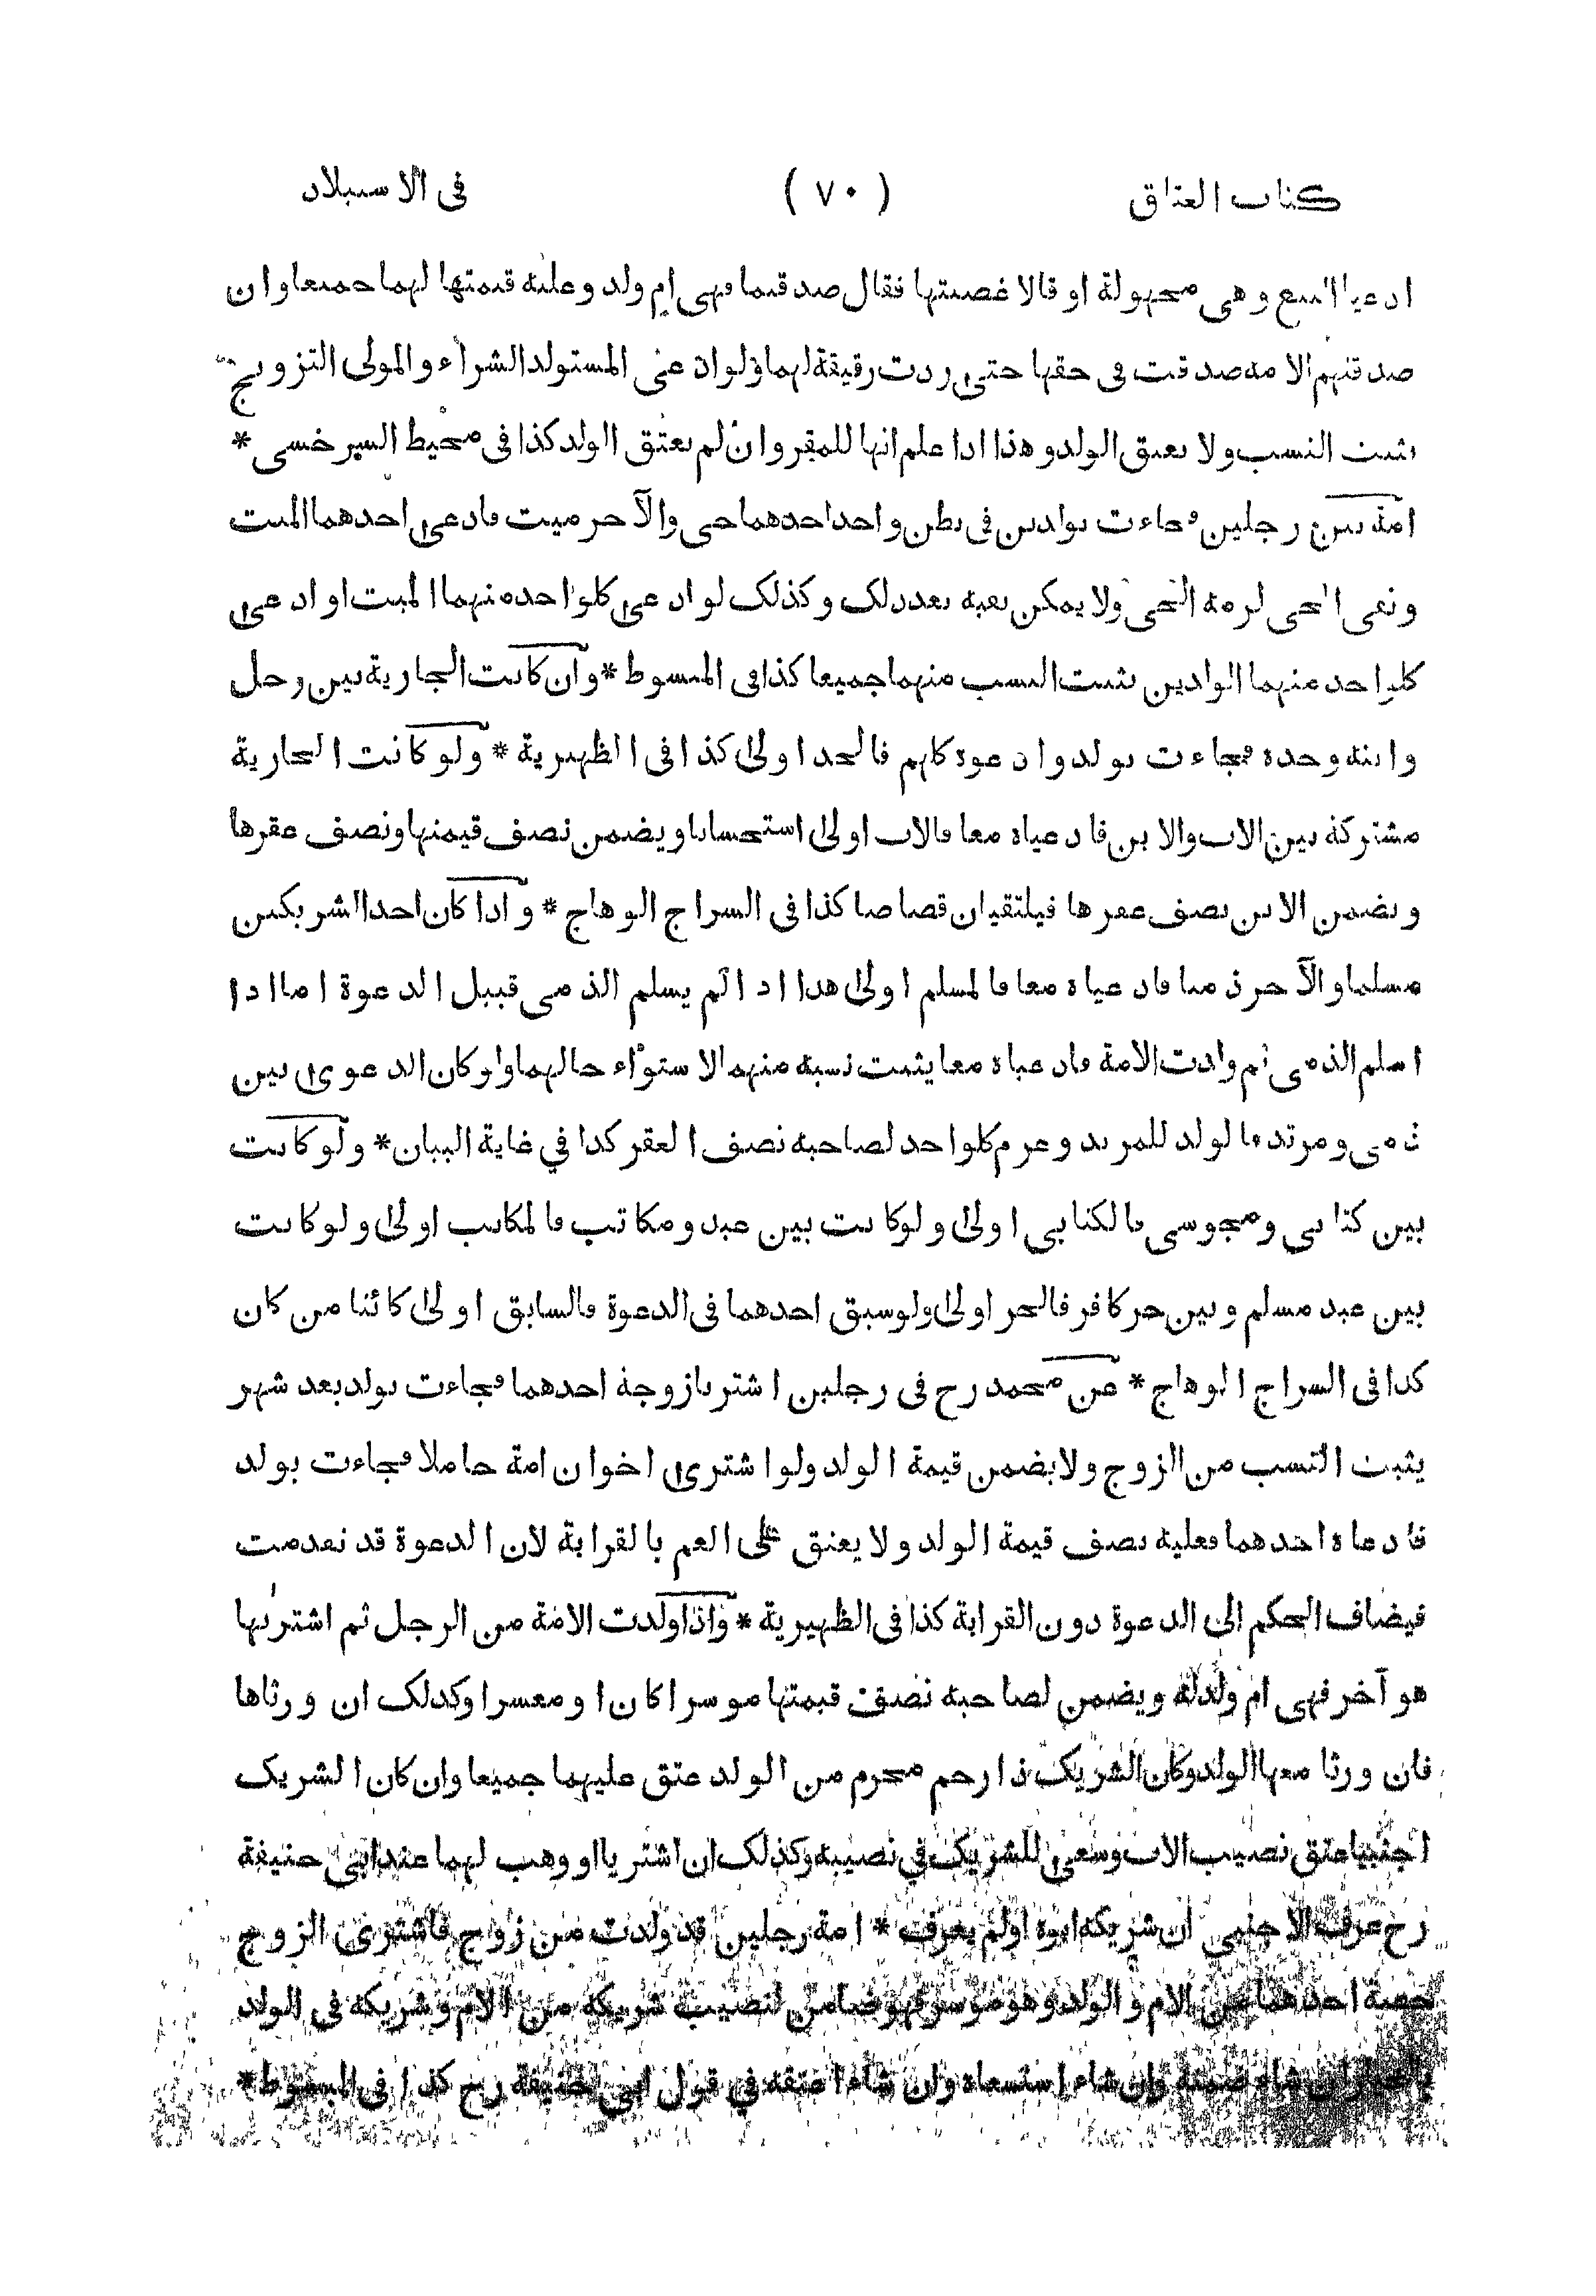 كتاب العتاق (٧٠) فى الاستيلاد
ادعيا البيع وهى مجهولة او قالا غصبتها فقال صدقتما فهى ام ولد وعليه قيمتها لهما جميعا وان
صدقتهم الامة صدقت فى حقها حتى ردت رقيقة لهما ولو ادعى المستولد الشراء والمولى التزويج
يثبت النسب ولا يعتق الولد وهذا اذا علم انها للمقر وان لم يعتق الولد كذا فى محيط السرخسى *
امة بين رجلين فجاءت بولدين فى بطن واحد احدهما حى والآخر ميت فادعى احدهما الميت
ونفى الحى لزمه الحى ولا يمكن نفيه بعد ذلك وكذلك لو ادعى كلواحد منهما الميت او ادعى
كلواحد منهما الولدين يثبت النسب منهما جميعا كذا فى المبسوط * وان كانت الجارية بين رجل
وابنه وجده فجاءت بولد وادعوه كلهم فالجد اولى كذا فى الظهيرية * ولو كانت الجارية
مشتركة بين الاب والابن فادعياه معا فالاب اولى استحسانا ويضمن نصف قيمتها ونصف عقرها
ويضمن الابن نصف عقرها فيلتقيان قصاصا كذا فى السراج الوهاج * واذا كان احد الشريكين
مسلما والآخر ذميا فادعياه معا فالمسلم اولى هذا اذا لم يسلم الذمى قبيل الدعوة اما اذا
اسلم الذمى ثم ولدت الامة فادعياه معا يثبت نسبه منهما لاستواء حالهما ولو كان الدعوى بين
ذمى ومرتد فالولد للمرتد وغرم كلواحد لصاحبه نصف العقر كذا في غاية البيان * ولو كانت
بين كتابى ومجوسى فالكتابى اولى ولو كانت بين عبد ومكاتب فالمكاتب اولى ولو كانت
بين عبد مسلم وبين حر كافر فالحر اولى ولو سبق احدهما فى الدعوة فالسابق اولى كائنا من كان
كذا فى السراج الوهاج * عن محمد رح فى رجلين اشتريا زوجة احدهما فجاءت بولد بعد شهر
يثبت النسب من الزوج ولا يضمن قيمة الولد ولو اشترى اخوان امة حاملا فجاءت بولد
فادعاه احدهما فعليه نصف قيمة الولد ولا يعتق على العم بالقرابة لان الدعوة قد تقدمت
فيضاف الحكم الى الدعوة دون القرابة كذا فى الظهيرية * واذا ولدت الامة من الرجل ثم اشتريها
هو آخر فهى ام ولد له ويضمن لصاحبه نصف قيمتها موسرا كان او معسرا وكذلك ان ورثاها
فان ورثا معها الولد وكان الشريك ذا رحم محرم من الولد عتق عليهما جميعا وان كان الشريك
اجنبيا عتق نصيب الاب وسعى للشريك في نصيبه وكذلك ان اشتريا او وهب لهما عند ابى حنيفة
رح عرف الاجنبي ان شريكه ابوه او لم يعرف * امة رجلين قد ولدت من زوج فاشترى الزوج
حصة احدهما من الام والولد وهو موسر فهو ضامن لنصيب شريكه من الام وشريكه فى الولد
بالخيار ان شاء ضمنه وان شاء استسعاه وان شاء اعتقه في قول ابى حنيفة رح كذا فى المبسوط *